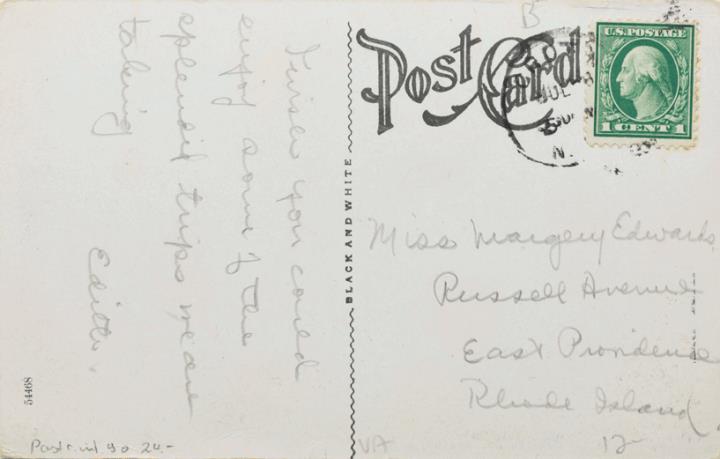 I wish you could
enjoy some of the
splendid trips we are
taking
Edith.
BLACK AND WHITE
54468
Post Card
B
U.S. POSTAGE
1 CENT 1
JUL
N.
Miss Margery Edwards
Russell Avenue
East Providence
Rhode Island
12
VA